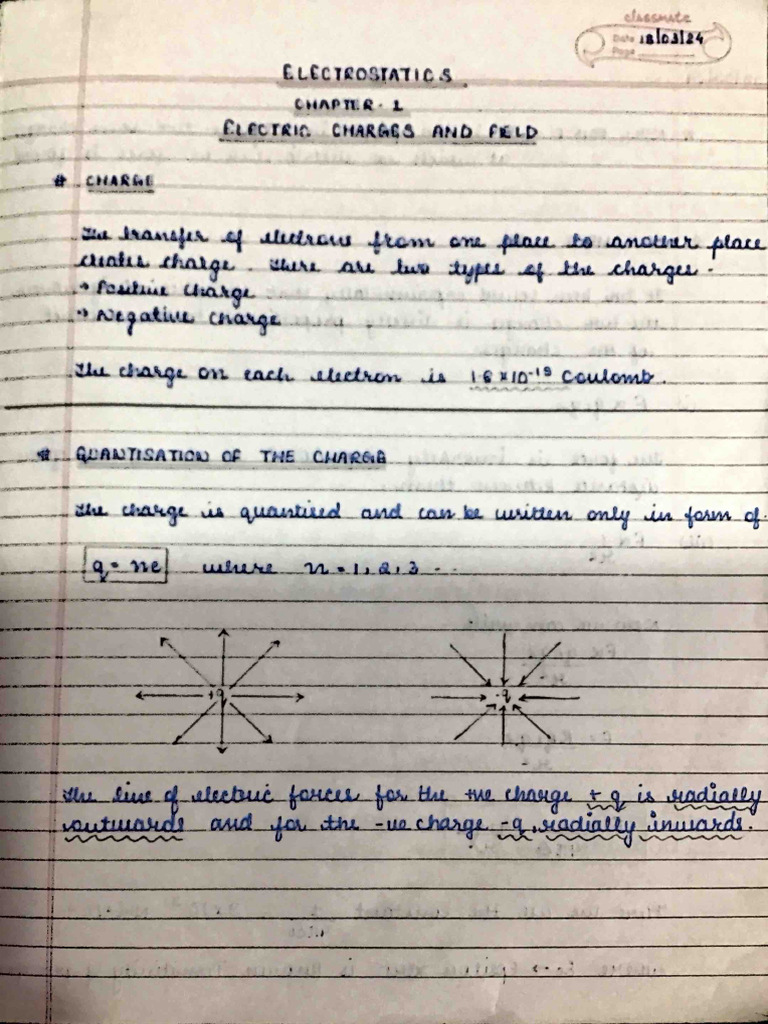 classmate
Date 18/03/24
Page
ELECTROSTATICS
CHAPTER - 1
ELECTRIC CHARGES AND FIELD
# CHARGE
The transfer of electrons from one place to another place
creates charge. There are two types of the charges.
→ Positive charge
→ Negative charge
The charge on each electron is 1.6 × 10⁻¹⁹ Coulomb.
# QUANTISATION OF THE CHARGE
The charge is quantised and can be written only in form of
q = ne where n = 1, 2, 3 ...
+q -q
The line of electric forces for the +ve charge + q is radially
outwards and for the -ve charge -q, radially inwards.